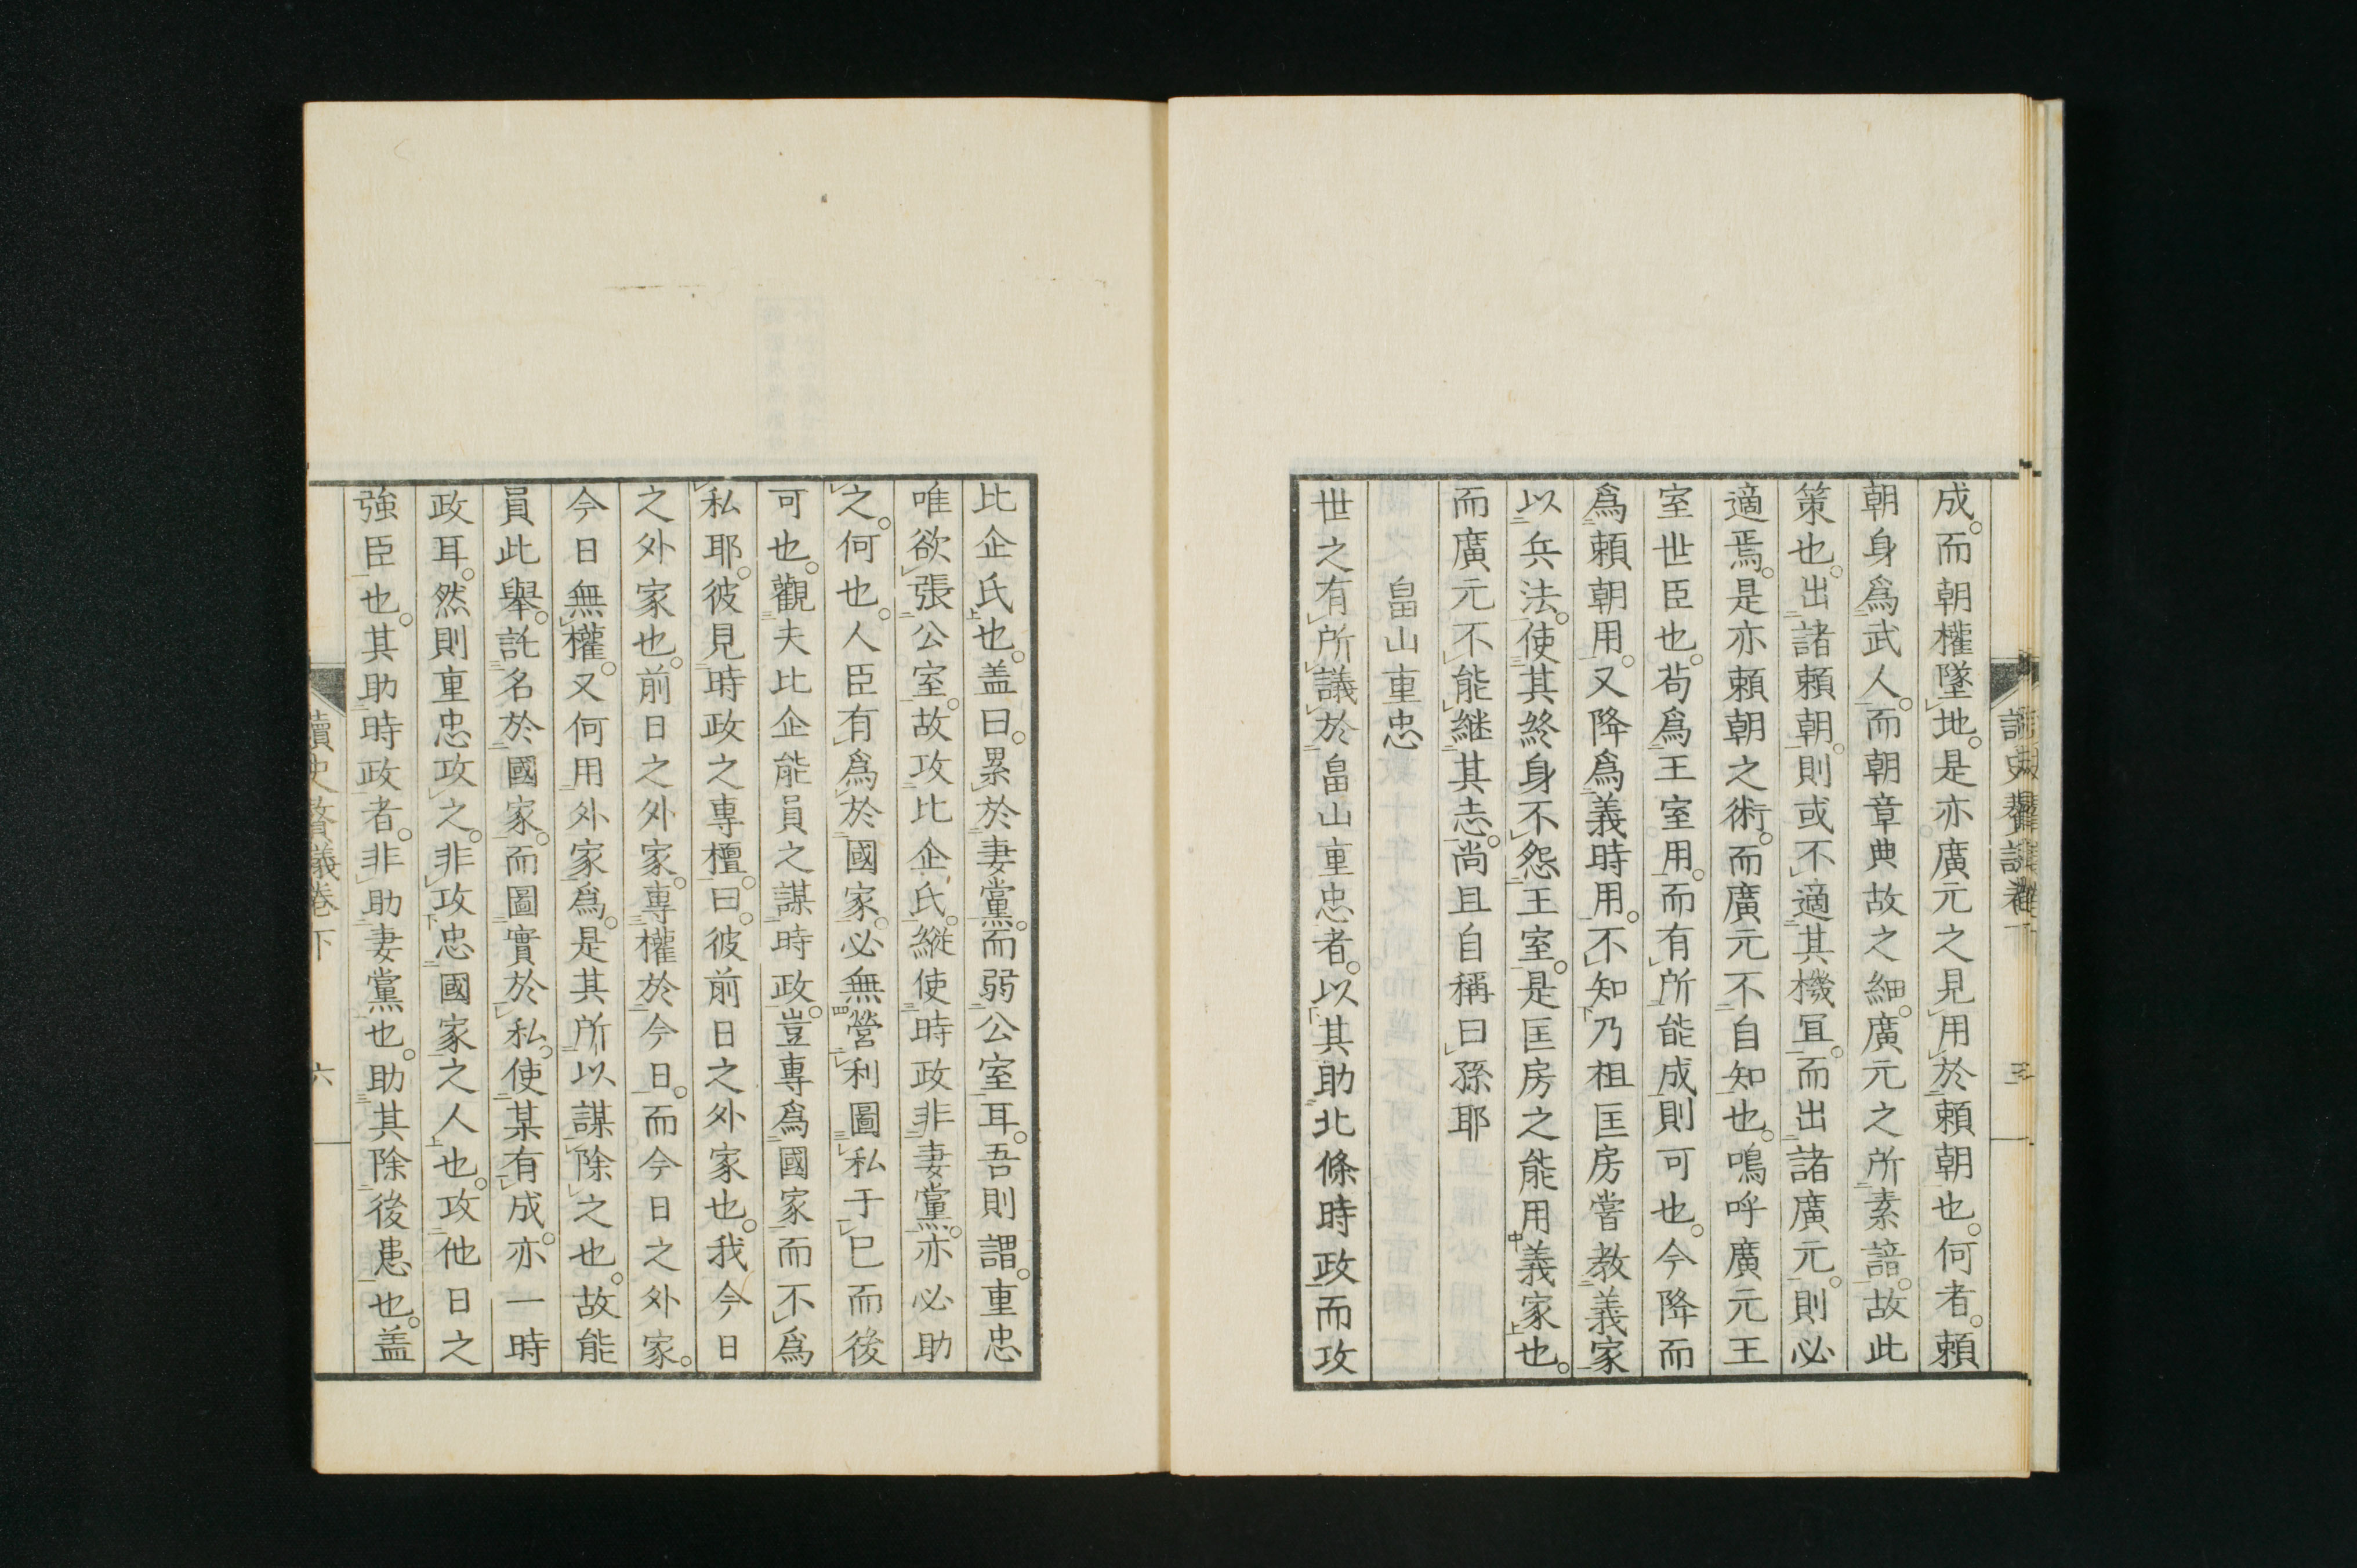 成。而朝權墜地。是亦廣元之見用於賴朝也。何者。賴
朝身爲武人。而朝章典故之細。廣元之所素諳。故此
策也。出諸賴朝。則或不適其機冝。而出諸廣元。則必
適焉。是亦賴朝之術。而廣元不自知也。嗚呼廣元王
室世臣也。茍爲王室用。而有所能成則可也。今降而
爲賴朝用。又降爲義時用。不知乃祖匡房嘗教義家
以兵法。使其終身不怨王室。是匡房之能用義家也。
而廣元不能継其志。尚且自稱曰孫耶
畠山重忠
世之有所議於畠山重忠者。以其助北條時政而攻
比企氏也。盖曰。累於妻黨。而弱公室耳。吾則謂。重忠
唯欲張公室。故攻比企氏。縱使時政非妻黨。亦必助
之。何也。人臣有爲於國家。必無營利圖私于已而後
可也。觀夫比企能員之謀時政。豈專爲國家而不爲
私耶。彼見時政之專檀。曰。彼前日之外家也。我今日
之外家也。前日之外家。專權於今日。而今日之外家。
今日無權。又何用外家爲。是其所以謀除之也。故能
員此舉。託名於國家。而圖實於私。使某有成。亦一時
政耳。然則重忠攻之。非攻忠國家之人也。攻他日之
強臣也。其助時政者。非助妻黨也。助其除後患也。盖
讀史贅議卷下 六